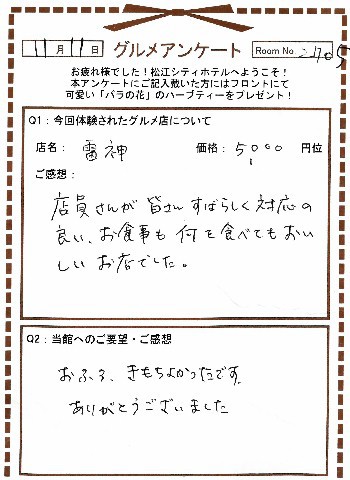 11月11日 グルメアンケート Room No. 2705
お疲れ様でした！松江シティホテルへようこそ！
本アンケートにご記入敷いた方にはフロントにて
可愛い「バラの花」のハーブティーをプレゼント！
Q1：今回体験されたグルメ店について
店名： 雷神 価格： 5,000 円位
ご感想：
店員さんが皆さんすばらしく対応の
良い、お食事も何を食べてもおい
しいお店でした。
Q2：当館へのご要望・ご感想
おふろ、きもちよかったです。
ありがとうございました